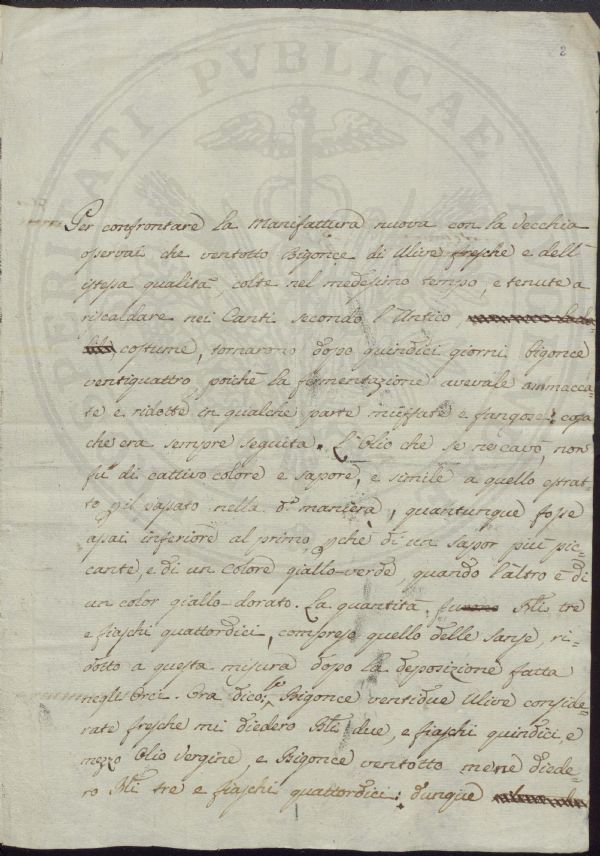 2
PROSPERITATI PVBLICAE
Per confrontare la Manifattura nuova con la Vecchia
osservai che ventotto Bigonce di Ulive fresche e dell'
istessa qualità, colte nel medesimo tempo, e tenute a
riscaldare nei Canti secondo l'Antico
costume, tornarono dopo quindici giorni bigonce
ventiquattro, poichè la fermentazione avevale ammacca-
te e ridotte in qualche parte muffate e fangose: cosa
che era sempre seguita. L'Olio che se ne cavò, non
fù di cattivo colore e sapore, e simile a quello estrat-
to p il passato nella d.a maniera, quantunque fosse
assai inferiore al primo, pchè di un sapor più pic-
cante, e di un colore giallo-verde, quando l'altro è di
un color giallo-dorato. La quantità fu Bli tre
e fiaschi quattordici, compreso quello delle sanse, ri-
dotto a questa misura dopo la deposizione fatta
negli Orci. Ora dico: se Bigonce ventidue Ulive conside-
rate fresche mi diedero Bli due, e fiaschi quindici, e
mezzo Olio Vergine, e Bigonce ventotto me ne diede-
ro Bli tre e fiaschi quattordici: dunque